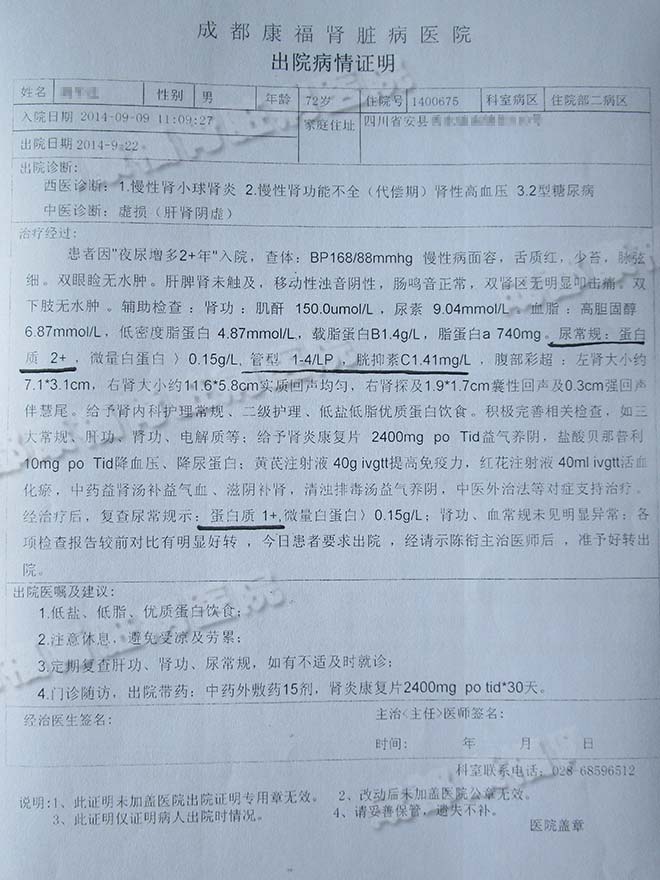 成都康福肾脏病医院
出院病情证明
姓名 性别 男 年龄 72岁 住院号 1400675 科室病区 住院部二病区
入院日期 2014-09-09 11:09:27 家庭住址 四川省安县 号
出院日期 2014-9-22
出院诊断:
西医诊断: 1.慢性肾小球肾炎 2.慢性肾功能不全(代偿期)肾性高血压 3.2型糖尿病
中医诊断: 虚损(肝肾阴虚)
治疗经过:
患者因"夜尿增多2+年"入院,查体: BP168/88mmhg 慢性病面容,舌质红,少苔,脉弦
细。双眼睑无水肿。肝脾肾未触及,移动性浊音阴性,肠鸣音正常,双肾区无明显叩击痛。双
下肢无水肿。辅助检查:肾功:肌酐 150.0umol/L,尿素 9.04mmol/L。血脂:高胆固醇
6.87mmol/L,低密度脂蛋白 4.87mmol/L,载脂蛋白B1.4g/L,脂蛋白a 740mg。尿常规:蛋白
质 2+,微量白蛋白〉0.15g/L,管型 1-4/LP,胱抑素C1.41mg/L,腹部彩超:左肾大小约
7.1*3.1cm,右肾大小约11.6*5.8cm实质回声均匀,右肾探及1.9*1.7cm囊性回声及0.3cm强回声
伴慧尾。给予肾内科护理常规、二级护理、低盐低脂优质蛋白饮食。积极完善相关检查,如三
大常规、肝功、肾功、电解质等;给予肾炎康复片 2400mg po Tid益气养阴,盐酸贝那普利
10mg po Tid降血压、降尿蛋白;黄芪注射液 40g ivgtt提高免疫力,红花注射液 40ml ivgtt活血
化瘀,中药益肾汤补益气血、滋阴补肾,清浊排毒汤益气养阴,中医外治法等对症支持治疗。
经治疗后,复查尿常规示:蛋白质 1+,微量白蛋白〉0.15g/L;肾功、血常规未见明显异常;各
项检查报告较前对比有明显好转,今日患者要求出院,经请示陈衔主治医师后,准予好转出
院。
出院医嘱及建议:
1.低盐、低脂、优质蛋白饮食;
2.注意休息,避免受凉及劳累;
3.定期复查肝功、肾功、尿常规,如有不适及时就诊;
4.门诊随访,出院带药:中药外敷药15剂,肾炎康复片2400mg po tid*30天。
经治医生签名: 主治<主任>医师签名:
时间: 年 月 日
科室联系电话: 028-68596512
说明:1、此证明未加盖医院出院证明专用章无效。 2、改动后未加盖医院公章无效。
3、此证明仅证明病人出院时情况。 4、请妥善保管,遗失不补。
医院盖章